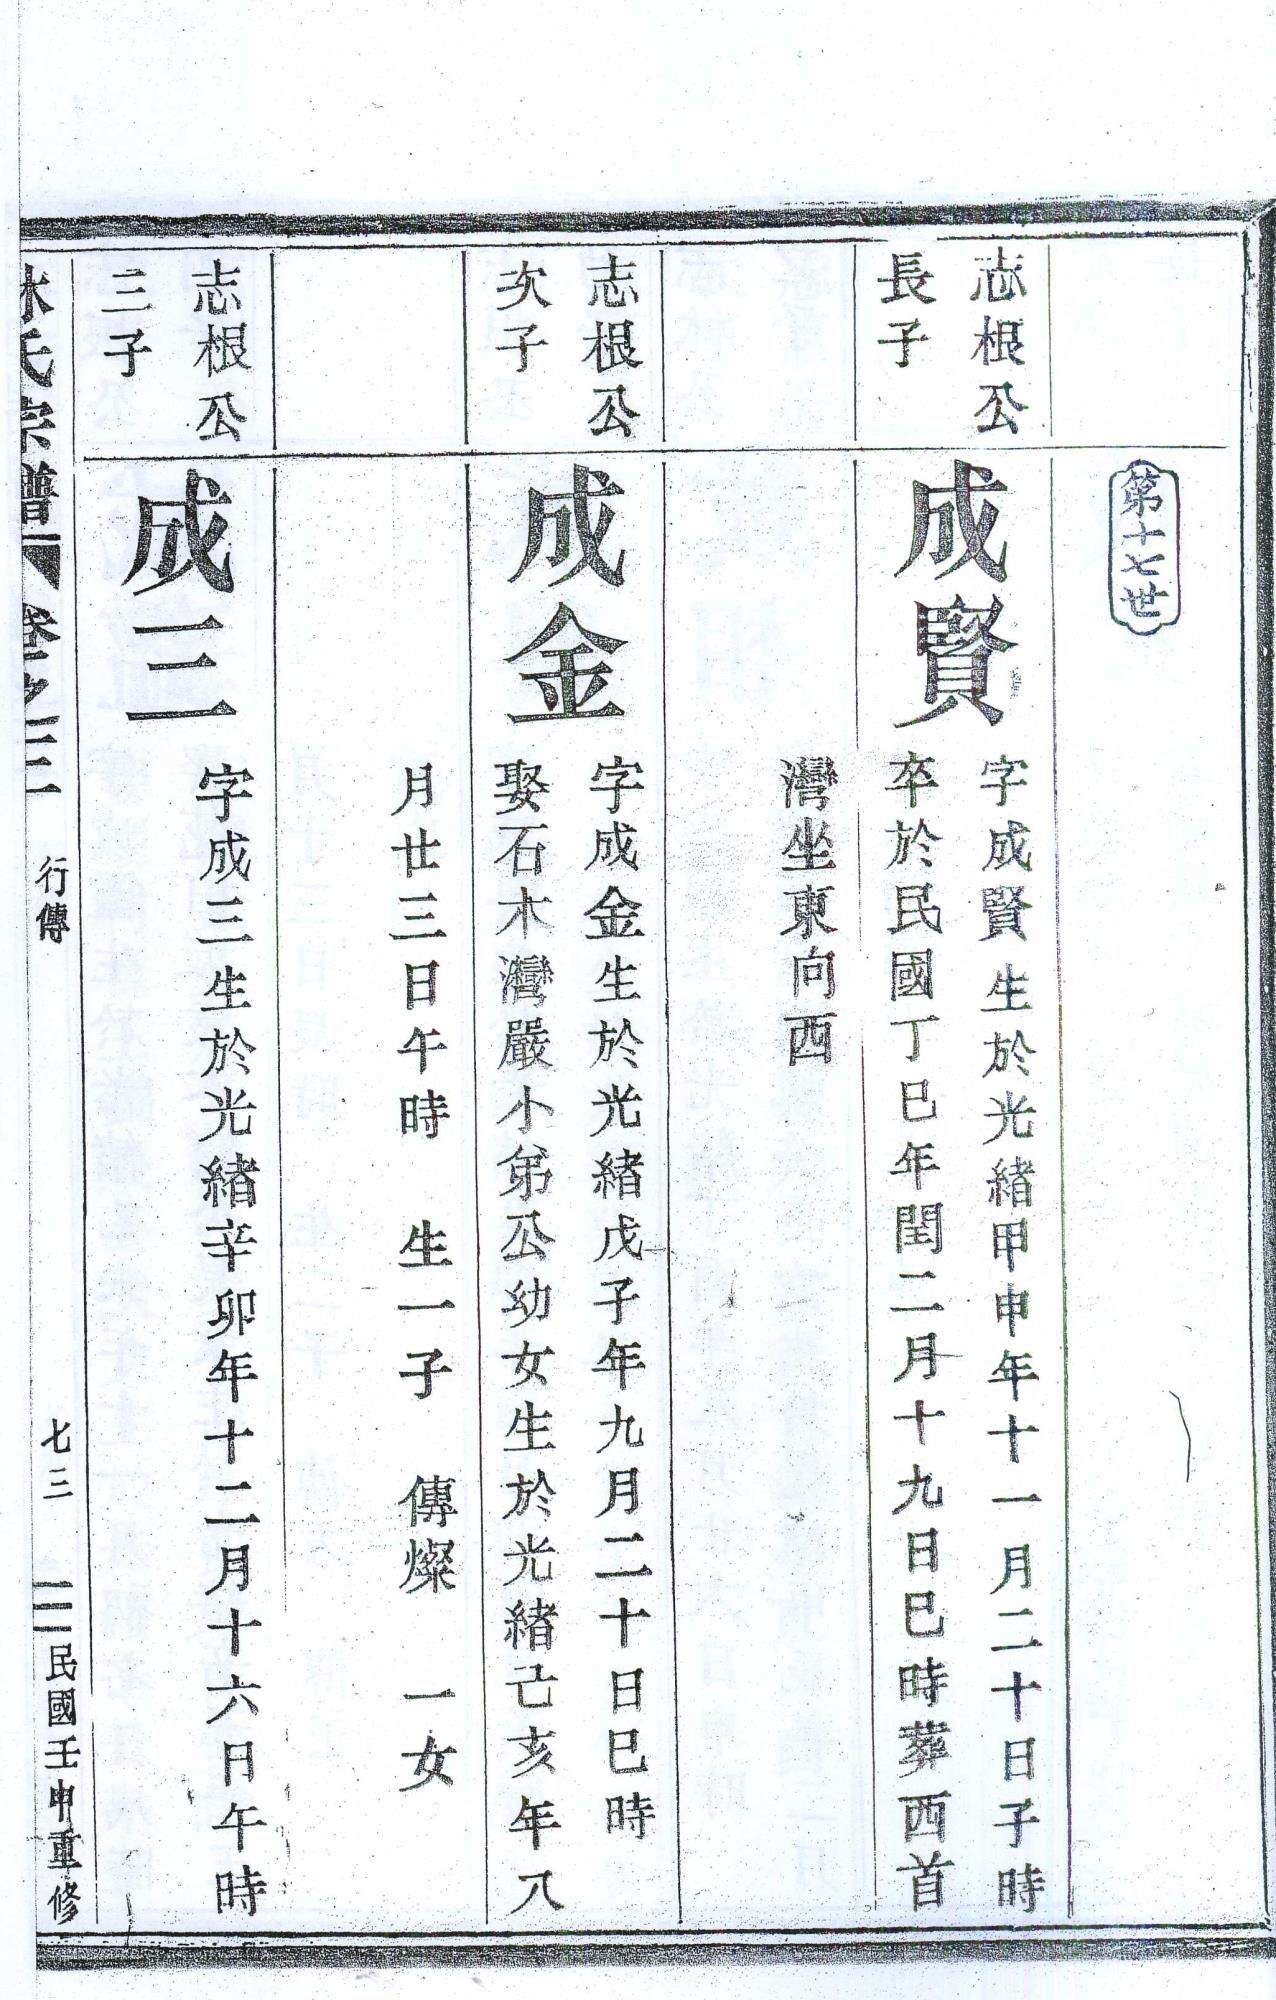 第十七世
志根公
長子
成賢
字成賢生於光緒甲申年十一月二十日子時
卒於民國丁巳年閏二月十九日巳時葬西首
灣坐東向西
志根公
次子
成金
字成金生於光緒戊子年九月二十日巳時
娶石木灣嚴小弟公幼女生於光緒己亥年八
月廿三日午時 生一子 傳燦 一女
志根公
三子
成三
字成三生於光緒辛卯年十二月十六日午時
林氏宗譜 卷之三 行傳 七三 民國壬申重修